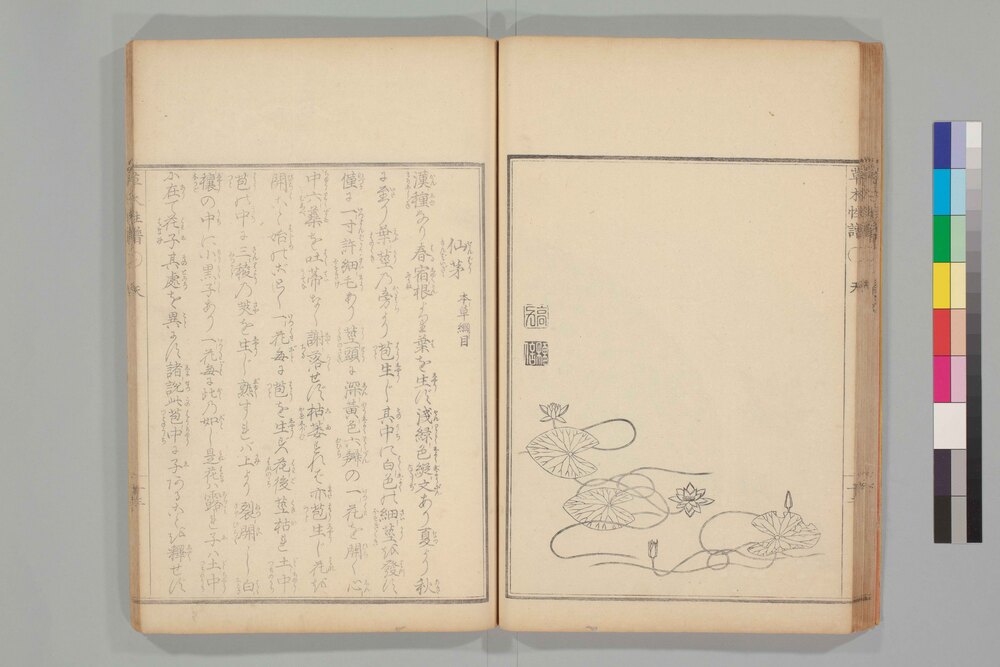 草木性譜 天
仙茅 本草綱目
漢種あり春宿根より葉を生ず淺緑色縦文あり夏より秋
に至り葉莖の旁より苞生じ其中に白色の細莖を發す
僅に一寸許細毛あり莖頭に深黄色六瓣の一花を開く心
中六蘂を吐蒂なし謝落せず枯萎すれば亦苞生じ花を
開く始のごとし一花毎に苞を生ず花後莖枯れ土中
苞の中に三稜の莢を生じ熟すれば上より裂開し白
穰の中に小黒子あり一花毎に此の如し是花は露れ子は土中
に在て花子其處を異にす諸説此苞中に子あることを釋せず